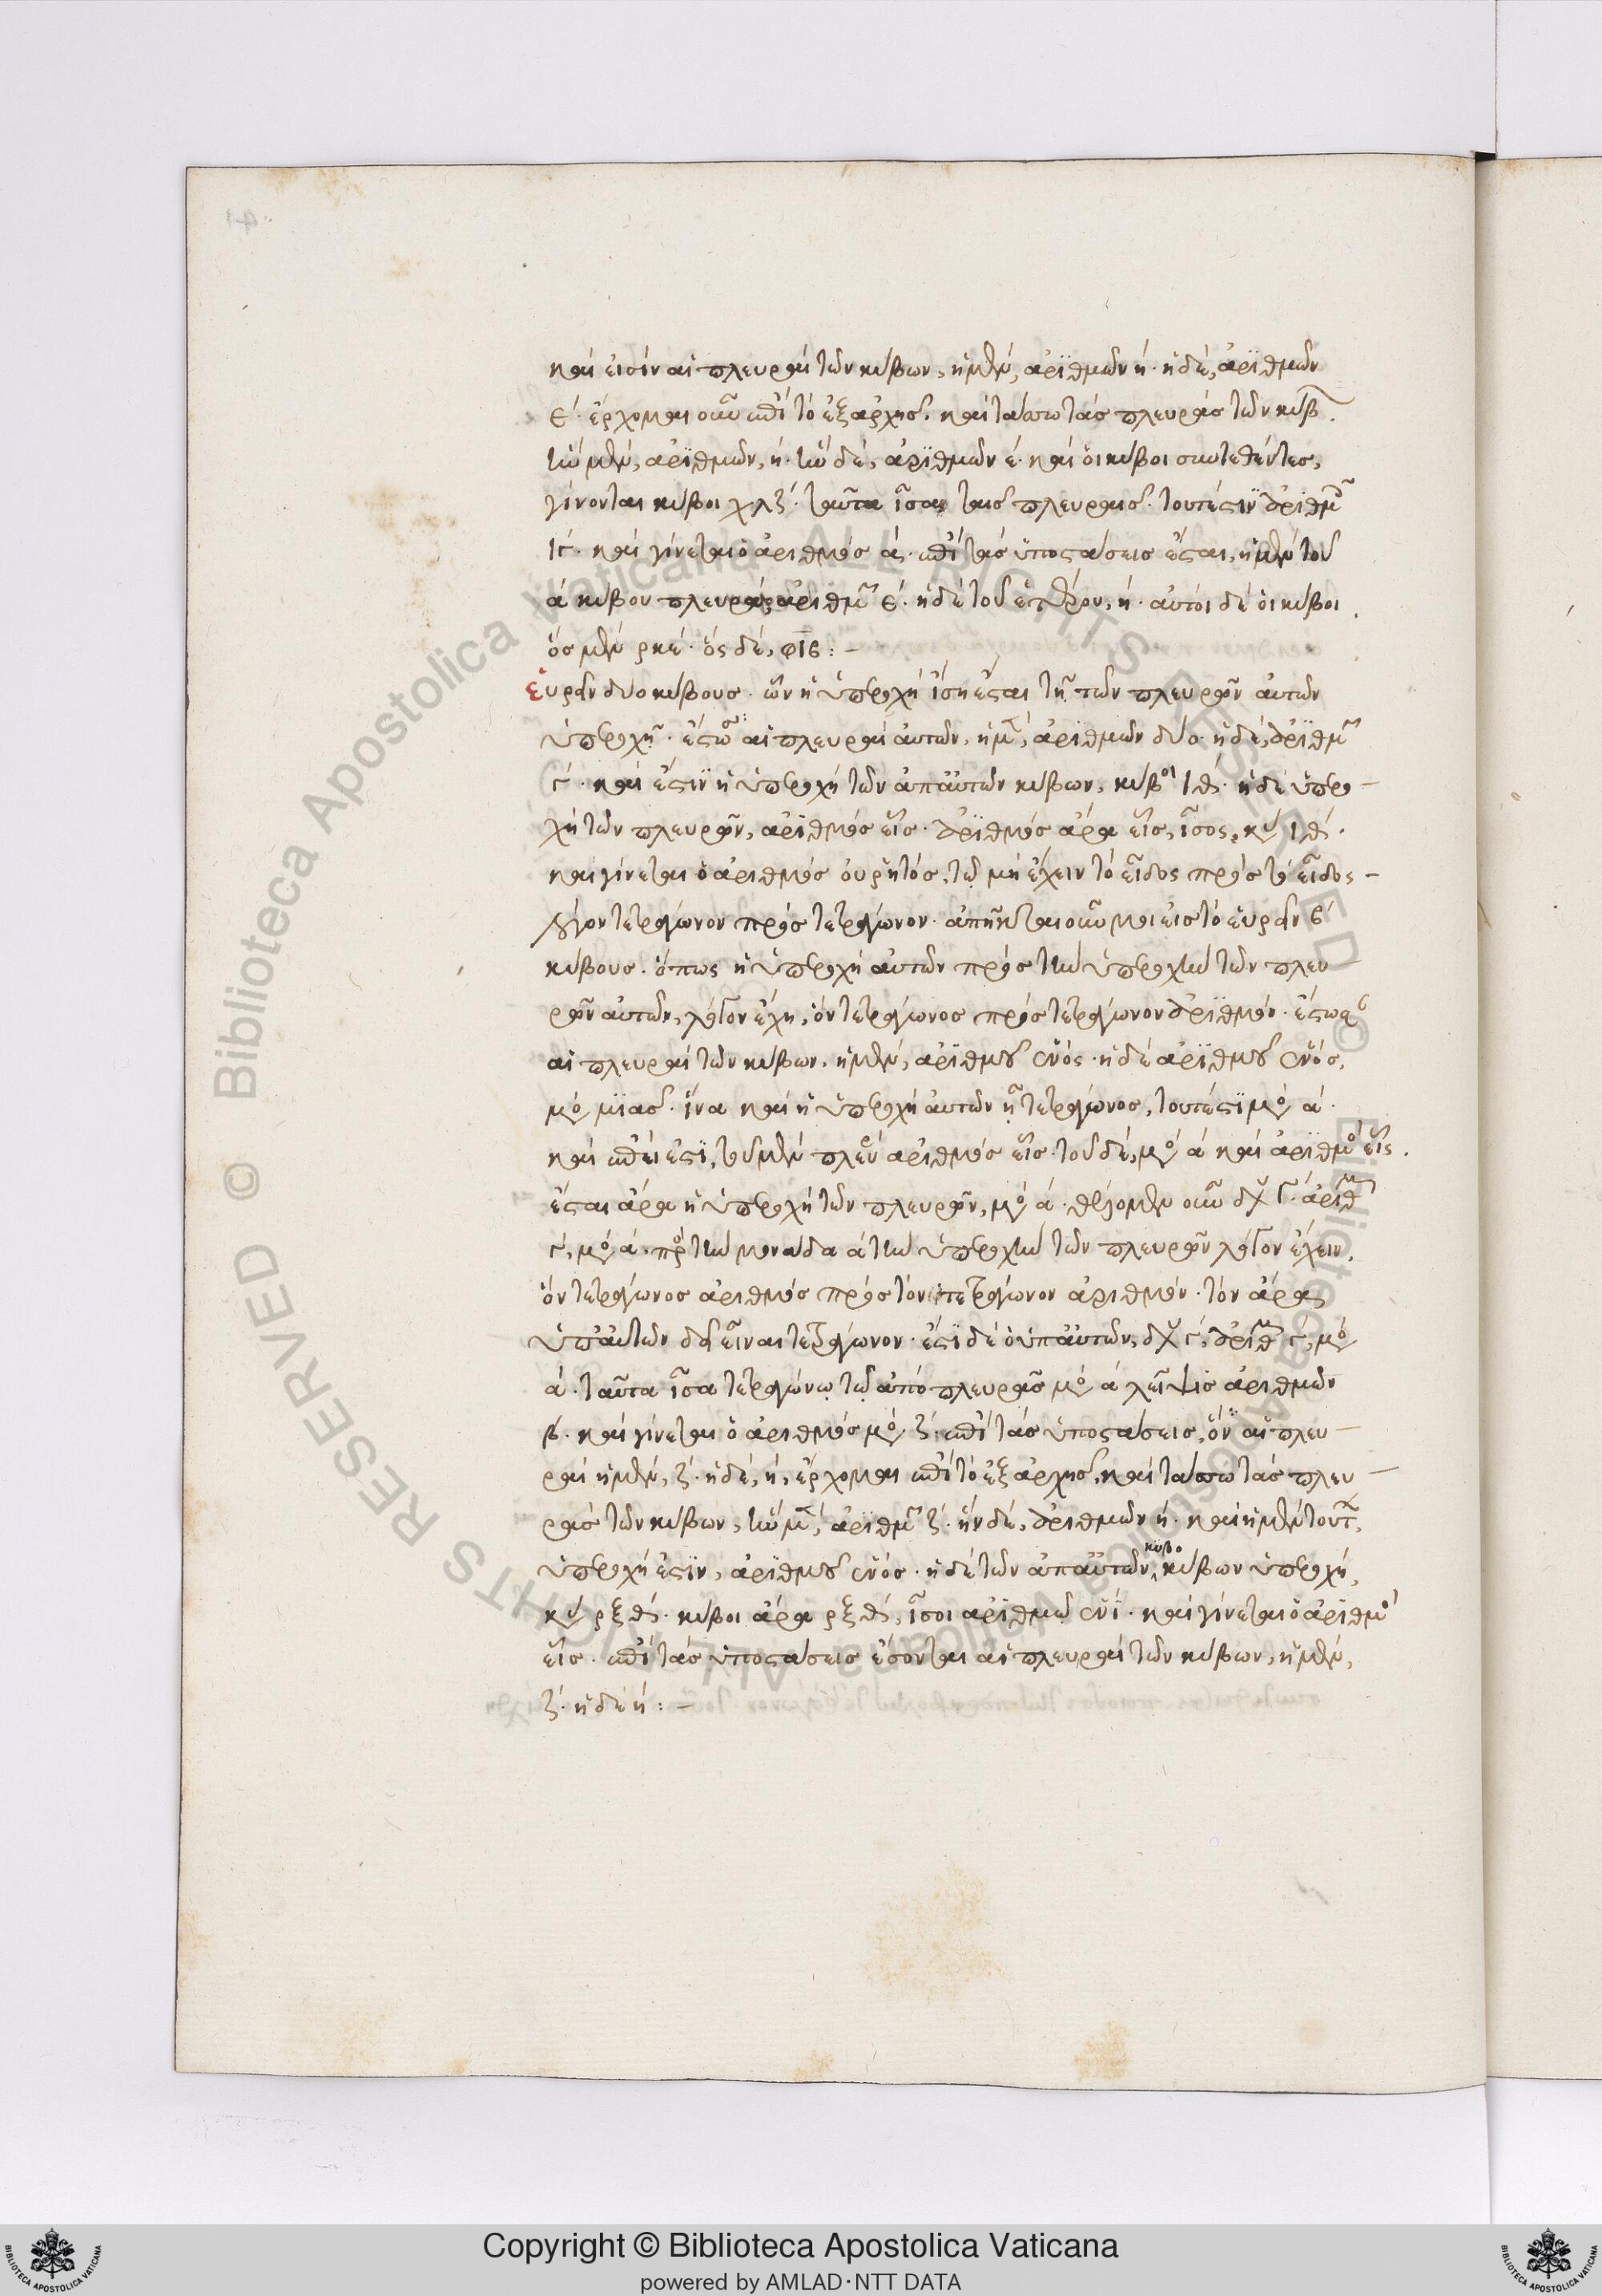 καὶ εἰσὶν αἱ πλευραὶ τῶν κύβων, ἡ μὲν, ἀριθμῶν ή· ἡ δὲ, ἀριθμῶν
ε΄· ἔρχομαι οὖν ἐπὶ τὸ ἐξαρχῆς. καὶ τάσσω τὰς πλευρὰς τῶν κύβ
τὴν μὲν, ἀριθμῶν, ή· τὴν δὲ, ἀριθμῶν έ· καὶ οἱ κύβοι συντεθέντες,
γίνονται κύβοι χλζ΄· ταῦτα ἴσα ταῖς πλευραῖς· τουτέστιν ἀριθμ
ιγ΄· καὶ γίνεται ὁ ἀριθμὸς ά· ἐπὶ τὰς ὑποστάσεις ἔσται, ἡ μὲν τοῦ
ά κύβου πλευρὰ, ἀριθμ ε΄· ἡ δὲ τοῦ ἑτέρου, ή· αὐτοὶ δὲ οἱ κύβοι
ὃς μὲν ρκέ· ὃς δὲ, φιβ:-
εὑρεῖν δύο κύβους· ὧν ἡ ὑπεροχὴ ἴση ἔσται τῇ τῶν πλευρῶν αὐτῶν
ὑπεροχῇ· ἔστωσαν αἱ πλευραὶ αὐτῶν, ἡ μ, ἀριθμῶν δύο· ἡ δὲ, ἀριθμ
γ΄· καὶ ἔστιν ἡ ὑπεροχὴ τῶν ἀπ' αὐτῶν κύβων, κύβοι ιθ΄· ἡ δὲ ὑπερο-
χὴ τῶν πλευρῶν, ἀριθμὸς εἷς· ἀριθμὸς ἄρα εἷς, ἴσος, κυ ιθ΄·
καὶ γίνεται ὁ ἀριθμὸς οὐ ῥητὸς, τῷ μὴ ἔχειν τὸ εἶδος πρὸς τὸ εἶδος-
λόγον τετραγώνου πρὸς τετράγωνον· ἀπῆκται οὖν μοι εἰς τὸ εὑρεῖν β΄
κύβους· ὅπως ἡ ὑπεροχὴ αὐτῶν πρὸς τὴν ὑπεροχὴν τῶν πλευ-
ρῶν αὐτῶν, λόγον ἔχῃ, ὃν τετράγωνος πρὸς τετράγωνον ἀριθμόν· ἔστωσ
αἱ πλευραὶ τῶν κύβων, ἡ μὲν, ἀριθμοῦ ἑνός· ἡ δὲ ἀριθμοῦ ἑνός,
μο μιᾶς· ἵνα καὶ ἡ ὑπεροχὴ αὐτῶν ᾖ τετράγωνος, τουτέστι μο ά·
καὶ ἐπεί ἐστι, τοῦ μὲν πλευ ἀριθμὸς εἷς· τοῦ δὲ, μο ά καὶ ἀριθμο εἷς·
ἔσται ἄρα ἡ ὑπεροχὴ τῶν πλευρῶν, μο ά· θέλομεν οὖν δυ γ΄· ἀριθμ
γ΄, μο ά· πρ τὴν μονάδα ά τὴν ὑπεροχὴν τῶν πλευρῶν λόγον ἔχειν,
ὃν τετράγωνος ἀριθμὸς πρὸς τὸν τετράγωνον ἀριθμόν· τὸν ἄρα,
ὑπ' αὐτῶν δεῖ εἶναι τετράγωνον· ἔστι δὲ ὁ ὑπ' αὐτῶν, δυ γ΄, ἀριθμ γ΄, μο
ά· ταῦτα ἴσα τετραγώνῳ τῷ ἀπὸ πλευρᾶς μο ά λείψις ἀριθμῶν
β· καὶ γίνεται ὁ ἀριθμὸς μο ζ· ἐπὶ τὰς ὑποστάσεις, αἱ πλευ-
ραὶ ἡ μὲν, ζ· ἡ δὲ, ή, ἔρχομαι ἐπὶ τὸ ἐξ ἀρχῆς, καὶ τάσσω τὰς πλευ-
ρὰς τῶν κύβων, τὴν μ, ἀριθμ ζ· ἣν δὲ, ἀριθμῶν ή· καὶ ἡ μὲν τούτ,
ὑπεροχή ἐστιν, ἀριθμοῦ ἑνός· ἡ δὲ τῶν ἀπ' αὐτῶν κύβων ὑπεροχή,
κυ ρξθ΄· κύβοι ἄρα ρξθ΄, ἴσοι ἀριθμῷ ἑνί· καὶ γίνεται ὁ ἀριθμο
εἷς· ἐπὶ τὰς ὑποστάσεις ἔσονται αἱ πλευραὶ τῶν κύβων, ἡ μὲν,
ζ· ἡ δὲ ή:-
Copyright © Biblioteca Apostolica Vaticana
powered by AMLAD·NTT DATA